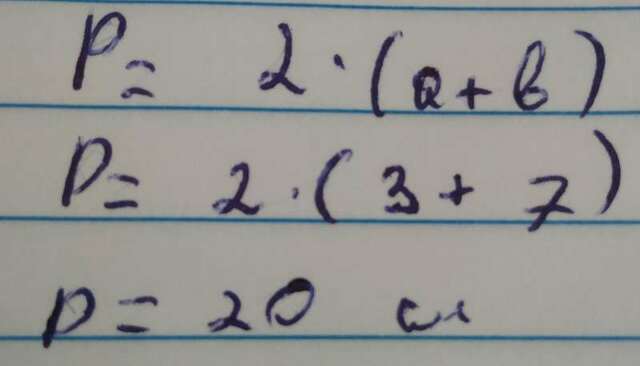 P = 2 · (a + b)
P = 2 · (3 + 7)
P = 20 см